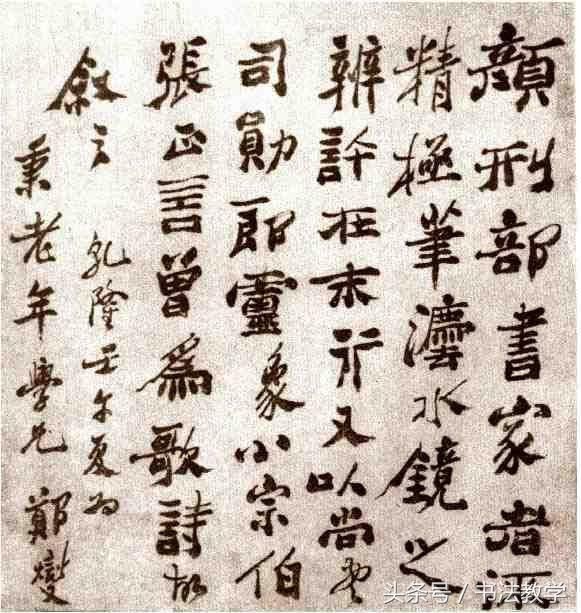 顏刑部書家者流
精極筆灋水鏡之
辨許在末行又以尚書
司勛郎靈象小宗伯
張正言曾爲歌詩故
敘之
乾隆壬午夏为
秉老年學兄 鄭燮
头条号 / 书法教学